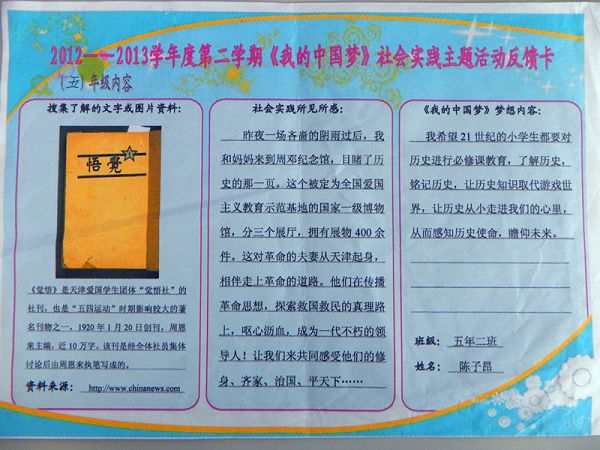 2012——2013学年度第二学期《我的中国梦》社会实践主题活动反馈卡
（五）年级内容
搜集了解的文字或图片资料：
悟觉
《觉悟》是天津爱国学生团体“觉悟社”的
社刊，也是“五四运动”时期影响较大的著
名刊物之一，1920年1月20日创刊，周恩
来主编，近10万字。该刊是经全体社员集体
讨论后由周恩来执笔写成的。
资料来源： http://www.chinanews.com
社会实践所见所感：
昨夜一场吝啬的阴雨过后，我
和妈妈来到周邓纪念馆，目睹了历
史的那一页。这个被定为全国爱国
主义教育示范基地的国家一级博物
馆，分三个展厅，拥有展物400余
件。这对革命的夫妻从天津起身，
相伴走上革命的道路。他们在传播
革命思想，探索救国救民的真理路
上，呕心沥血，成为一代不朽的领
导人！让我们来共同感受他们的修
身、齐家、治国、平天下……
《我的中国梦》梦想内容：
我希望21世纪的小学生都要对
历史进行必修课教育，了解历史，
铭记历史，让历史知识取代游戏世
界，让历史从小走进我们的心里，
从而感知历史使命，瞻仰未来。
班级： 五年二班
姓名： 陈子昂